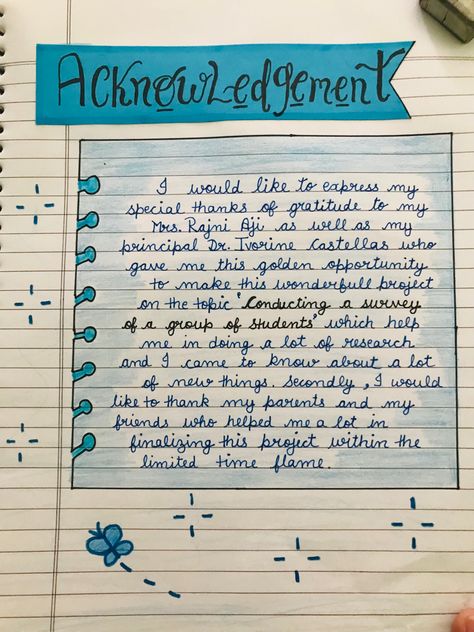 Acknowledgement
I would like to express my
special thanks of gratitude to my
Mrs. Rajni Aji as well as my
principal Dr. Ivorine Castellas who
gave me this golden opportunity
to make this wonderfull project
on the topic 'Conducting a survey
of a group of students' which help
me in doing a lot of research
and I came to know about a lot
of new things. Secondly, I would
like to thank my parents and my
friends who helped me a lot in
finalizing this project within the
limited time flame.